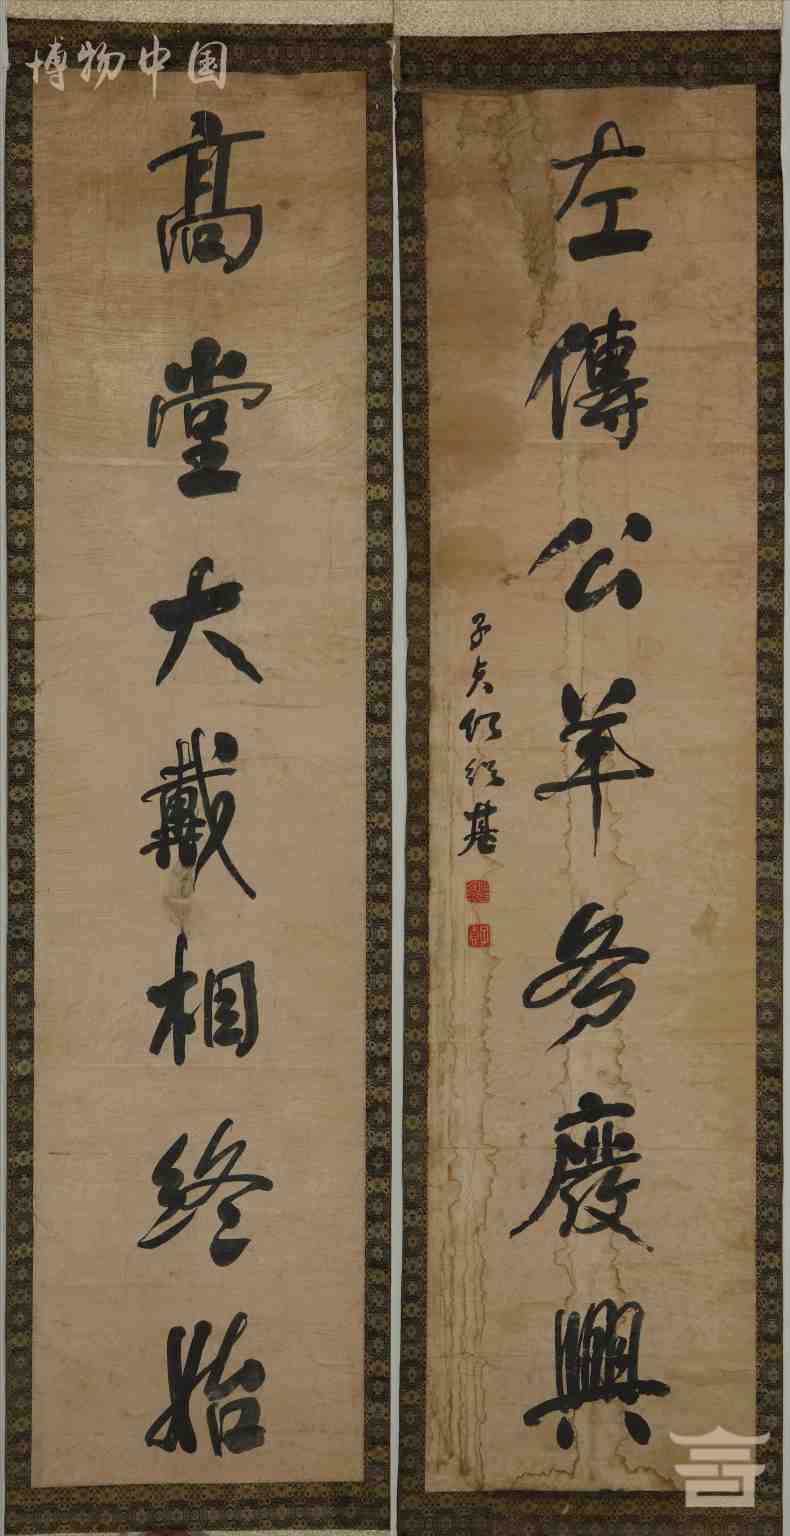 博物中国
高堂大戴相終始
左傳公羊廢興
子貞何紹基